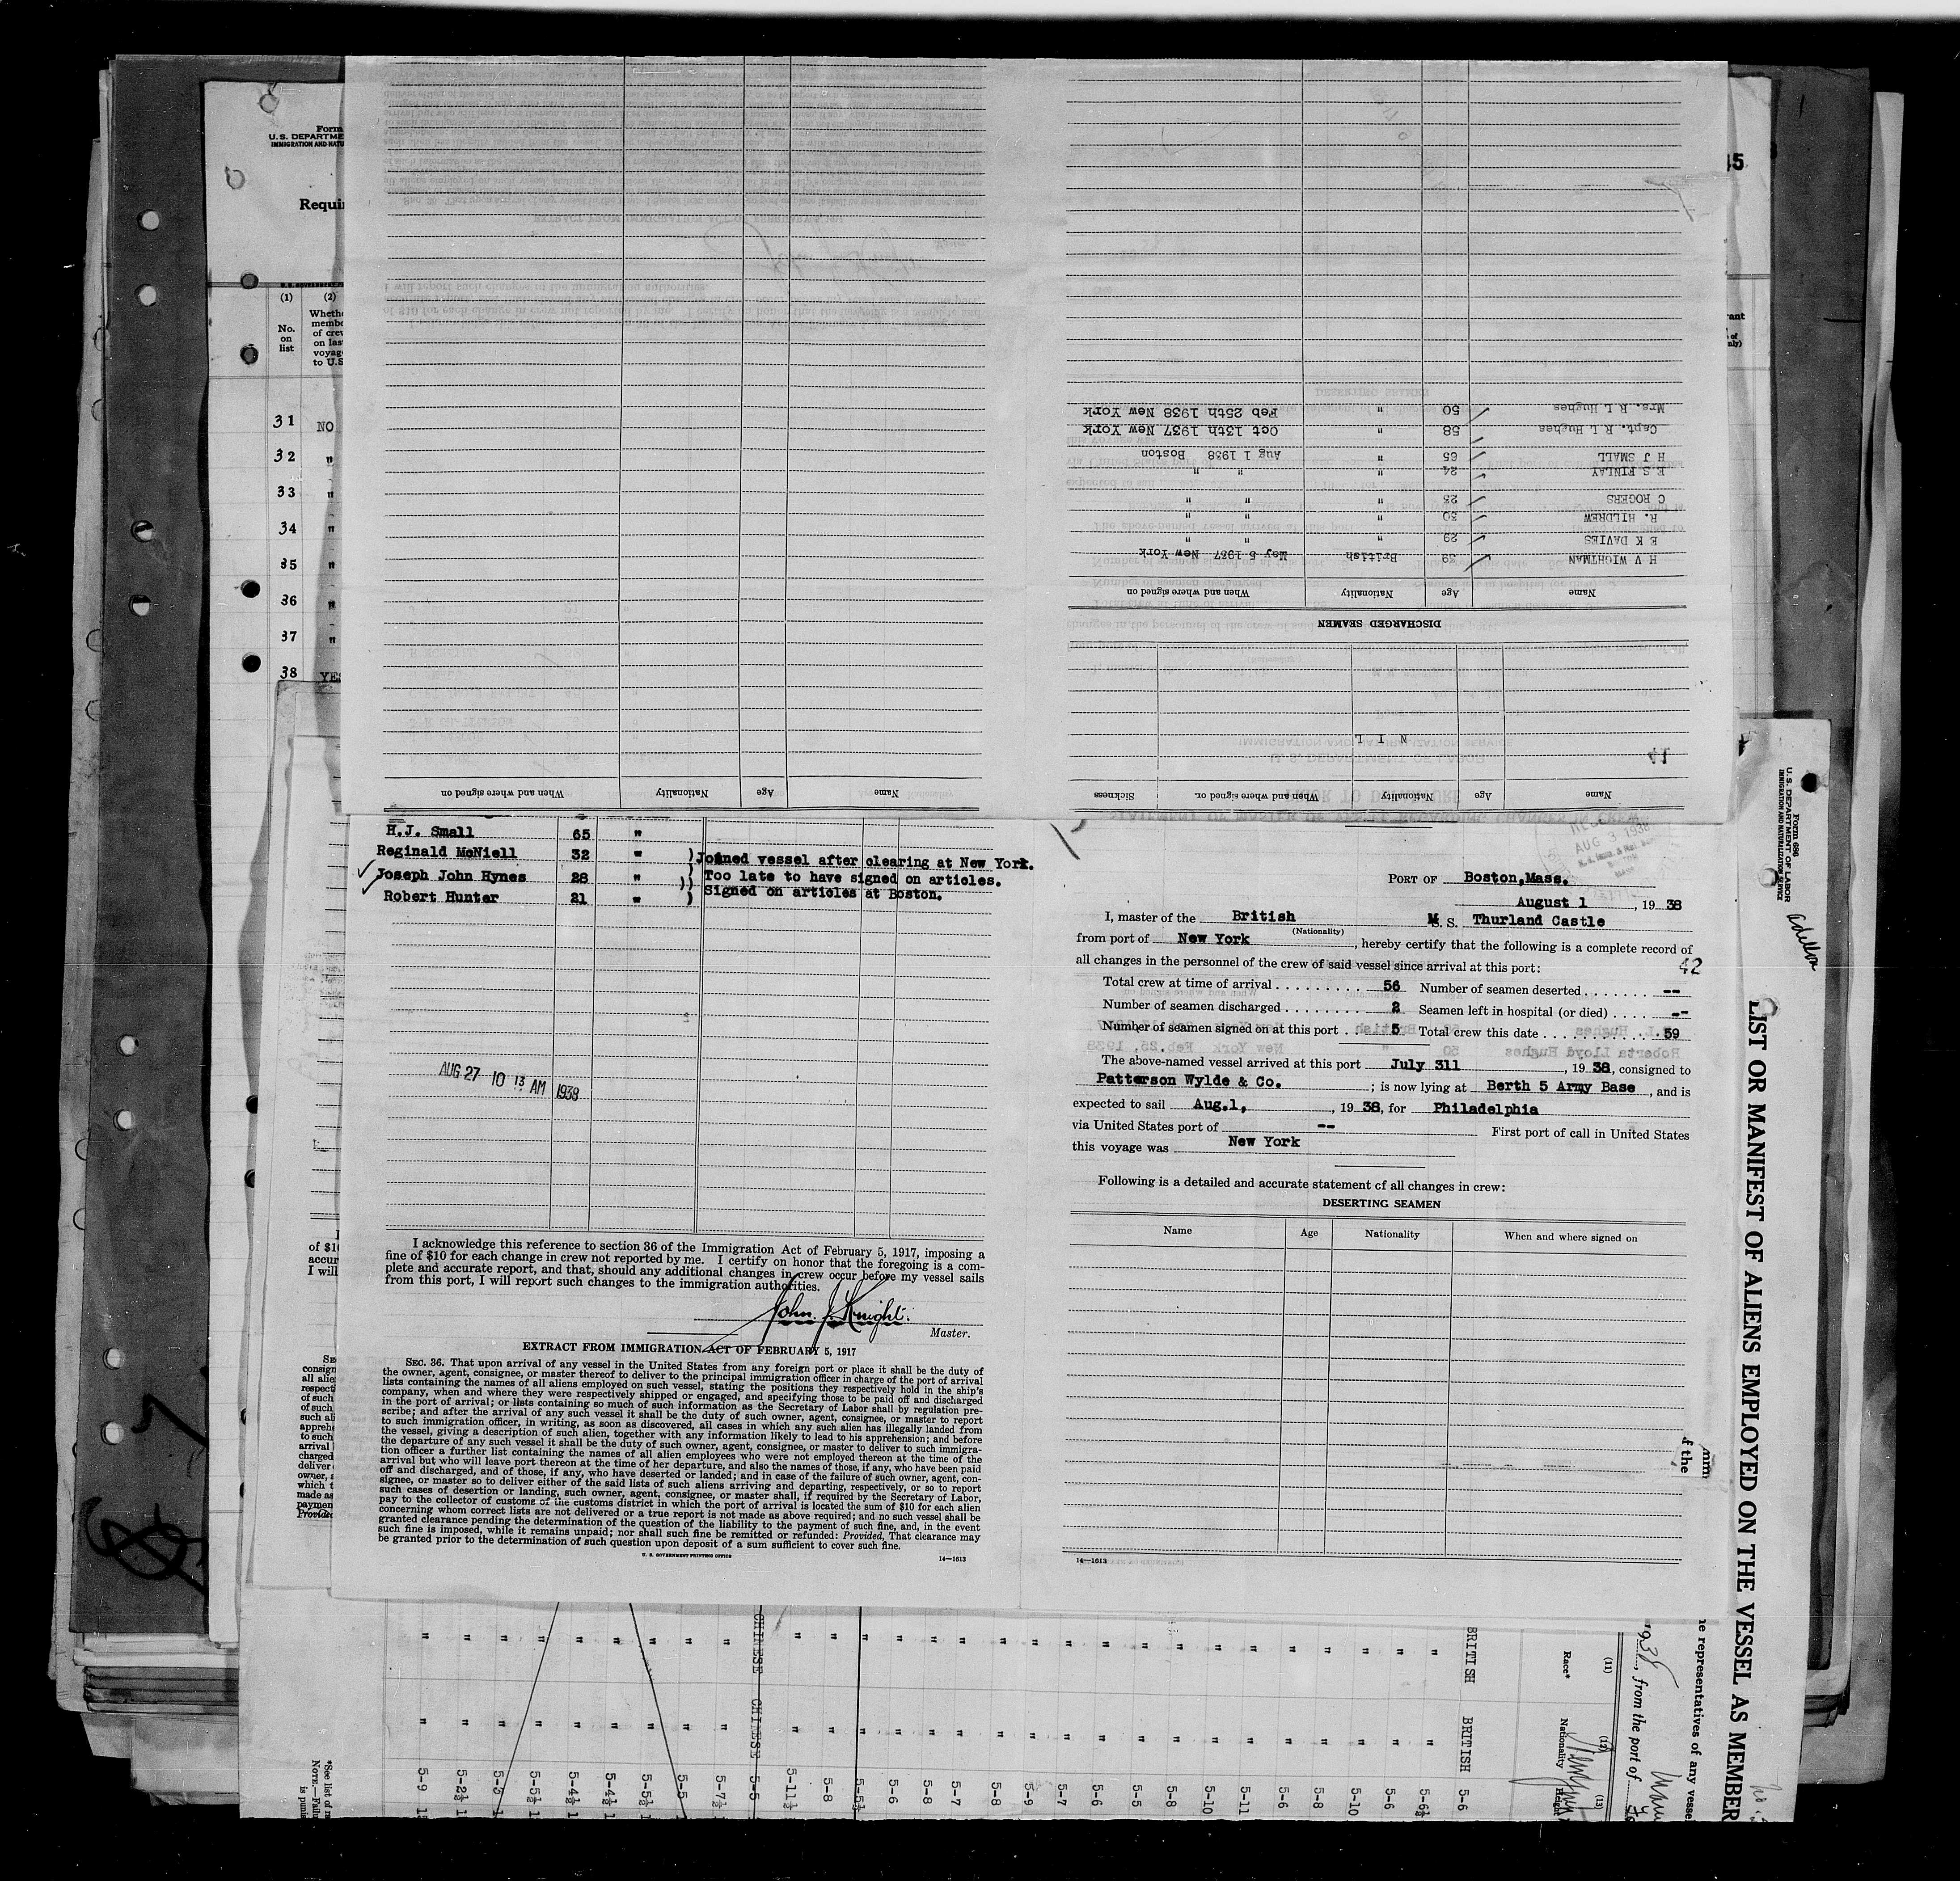 Form
U.S. DEPARTME
IMMIGRATION AND NATU
Requi
(1) (2)
No. on list
Whethe
membe
of crew
on last
voyage
to U.S.
31 NO
32 "
33 "
34 "
35 "
36 "
37 "
38 YES
15
Name Age Nationality When and where signed on
Name Age Nationality When and where signed or. Sickness
41
N I L
DISCHARGED SEAMEN
Name Age Nationality When and where signed on
H V WIGHTMAN 39 British May 5 1937 New York
E K DAVIES 29 " " "
R. HILDREW 30 " " "
C ROGERS 23 " " "
E S FINLAY 24 " " "
H J SMALL 65 " Aug 1 1938 Boston
Capt. R L Hughes 58 " Oct 13th 1937 New York
Mrs. R L Hughes 50 " Feb 25th 1938 New York
H.J. Small 65 "
Reginald McNiell 32 " ) Joined vessel after clearing at New York.
Joseph John Hynes 28 " ) Too late to have signed on articles.
Robert Hunter 21 " ) Signed on articles at Boston.
AUG 27 10 13 AM 1938
I acknowledge this reference to section 36 of the Immigration Act of February 5, 1917, imposing a
fine of $10 for each change in crew not reported by me. I certify on honor that the foregoing is a com-
plete and accurate report, and that, should any additional changes in crew occur before my vessel sails
from this port, I will report such changes to the immigration authorities.
John J Knight.
Master.
EXTRACT FROM IMMIGRATION ACT OF FEBRUARY 5, 1917
SEC. 36. That upon arrival of any vessel in the United States from any foreign port or place it shall be the duty of
the owner, agent, consignee, or master thereof to deliver to the principal immigration officer in charge of the port of arrival
lists containing the names of all aliens employed on such vessel, stating the positions they respectively hold in the ship's
company, when and where they were respectively shipped or engaged, and specifying those to be paid off and discharged
in the port of arrival; or lists containing so much of such information as the Secretary of Labor shall by regulation pre-
scribe; and after the arrival of any such vessel it shall be the duty of such owner, agent, consignee, or master to report
to such immigration officer, in writing, as soon as discovered, all cases in which any such alien has illegally landed from
the vessel, giving a description of such alien, together with any information likely to lead to his apprehension; and before
the departure of any such vessel it shall be the duty of such owner, agent, consignee, or master to deliver to such immigra-
tion officer a further list containing the names of all alien employees who were not employed thereon at the time of the
arrival but who will leave port thereon at the time of her departure, and also the names of those, if any, who have been paid
off and discharged, and of those, if any, who have deserted or landed; and in case of the failure of such owner, agent, con-
signee, or master so to deliver either of the said lists of such aliens arriving and departing, respectively, or so to report
such cases of desertion or landing, such owner, agent, consignee, or master shall, if required by the Secretary of Labor,
pay to the collector of customs of the customs district in which the port of arrival is located the sum of $10 for each alien
concerning whom correct lists are not delivered or a true report is not made as above required; and no such vessel shall be
granted clearance pending the determination of the question of the liability to the payment of such fine, and, in the event
such fine is imposed, while it remains unpaid; nor shall such fine be remitted or refunded: Provided, That clearance may
be granted prior to the determination of such question upon deposit of a sum sufficient to cover such fine.
U. S. GOVERNMENT PRINTING OFFICE 14—1613
AUG 3 1938
PORT OF Boston,Mass.
August 1, 19 38
I, master of the British M S. S. Thurland Castle
(Nationality)
from port of New York, hereby certify that the following is a complete record of
all changes in the personnel of the crew of said vessel since arrival at this port:
42
Total crew at time of arrival 56 Number of seamen deserted --
Number of seamen discharged 2 Seamen left in hospital (or died) --
Number of seamen signed on at this port 5 Total crew this date 59
The above-named vessel arrived at this port July 311, 19 38, consigned to
Patterson Wylde & Co.; is now lying at Berth 5 Army Base, and is
expected to sail Aug.1, 19 38, for Philadelphia
via United States port of -- First port of call in United States
this voyage was New York
Following is a detailed and accurate statement of all changes in crew:
DESERTING SEAMEN
Name Age Nationality When and where signed on
14—1613
Form 686
U. S. DEPARTMENT OF LABOR
IMMIGRATION AND NATURALIZATION SERVICE
LIST OR MANIFEST OF ALIENS EMPLOYED ON THE VESSEL AS MEMBER
he representatives of any vesse
1938, from the port of
(11) (12) (13)
Race* Nationality Height
BRITISH BRITISH 5-6
" " 5-6½
" " 5-6
" " 5-10
" " 5-8
" " 5-6
" " 5-11
" " 5-10
" " 5-8
" " 5-5
" " 5-6
" " 5-7
" " 5-9
" " 5-8
" " 5-7
" " 5-8
" " 5-6
" " 5-5½
" " 5-8
" " 5-11½
CHINESE CHINESE 5-5
" " 5-7½
" " 5-5
" " 5-5½
" " 5-4½
" " 5-4½
" " 5-5½
" " 5-3
" " 5-2½
" " 5-9
*See list of ra
NOTE.—Failu
is punis